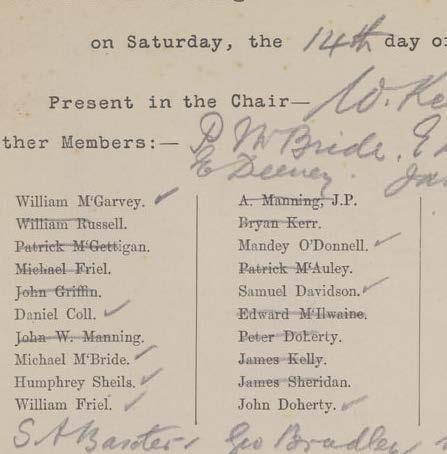 on Saturday, the 14th day of
Present in the Chair— W. Ke
ther Members:— P McBride, E
E Deeney. Ja
William M'Garvey. ✓
William Russell.
Patrick M'Gettigan.
Michael Friel.
John Griffin.
Daniel Coll. ✓
John W. Manning.
Michael M'Bride. ✓
Humphrey Sheils. ✓
William Friel. ✓
A. Manning, J.P.
Bryan Kerr.
Mandey O'Donnell. ✓
Patrick M'Auley.
Samuel Davidson. ✓
Edward M'Ilwaine.
Peter Doherty.
James Kelly.
James Sheridan.
John Doherty. ✓
S A Baxter, Geo Bradley,